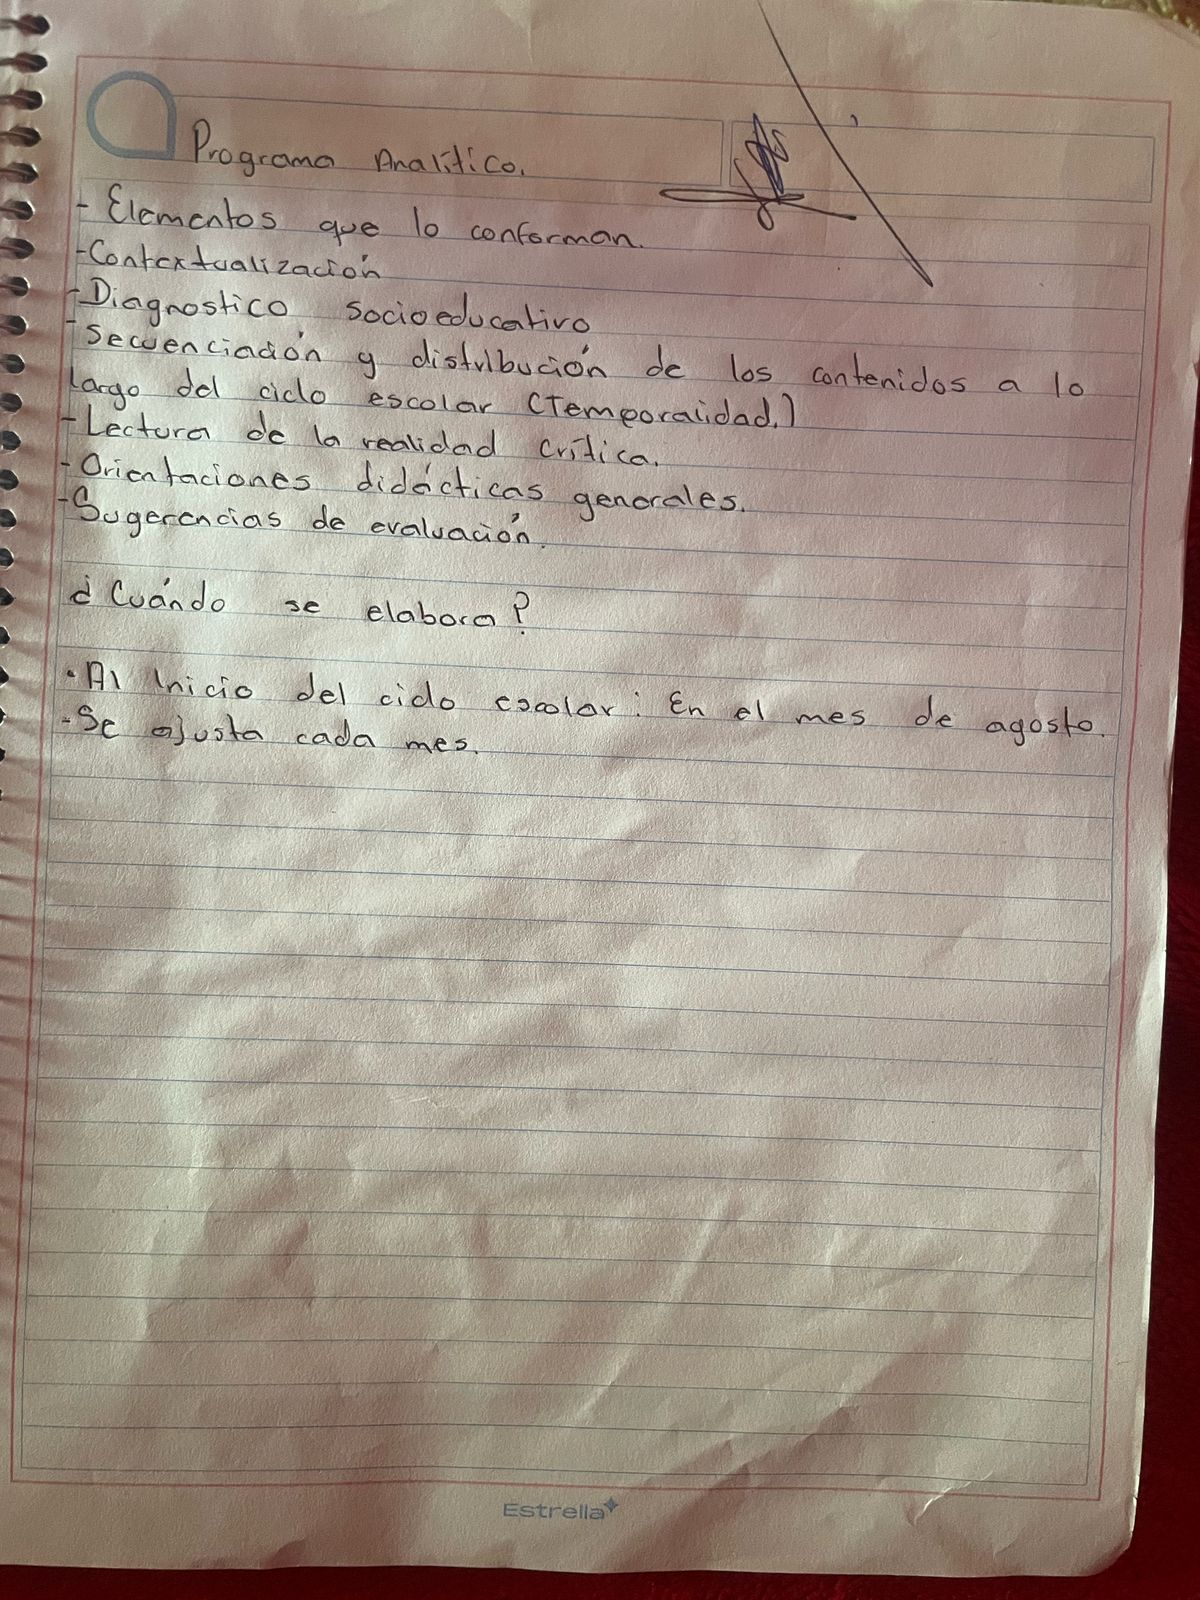 Programa Analítico.
- Elementos que lo conforman.
- Contextualización
- Diagnostico socioeducativo
- Secuenciación y distribución de los contenidos a lo
largo del ciclo escolar (Temporalidad.)
- Lectura de la realidad crítica.
- Orientaciones didácticas generales.
- Sugerencias de evaluación.
¿Cuándo se elabora?
· Al inicio del ciclo escolar: En el mes de agosto.
- Se ajusta cada mes.
Estrella